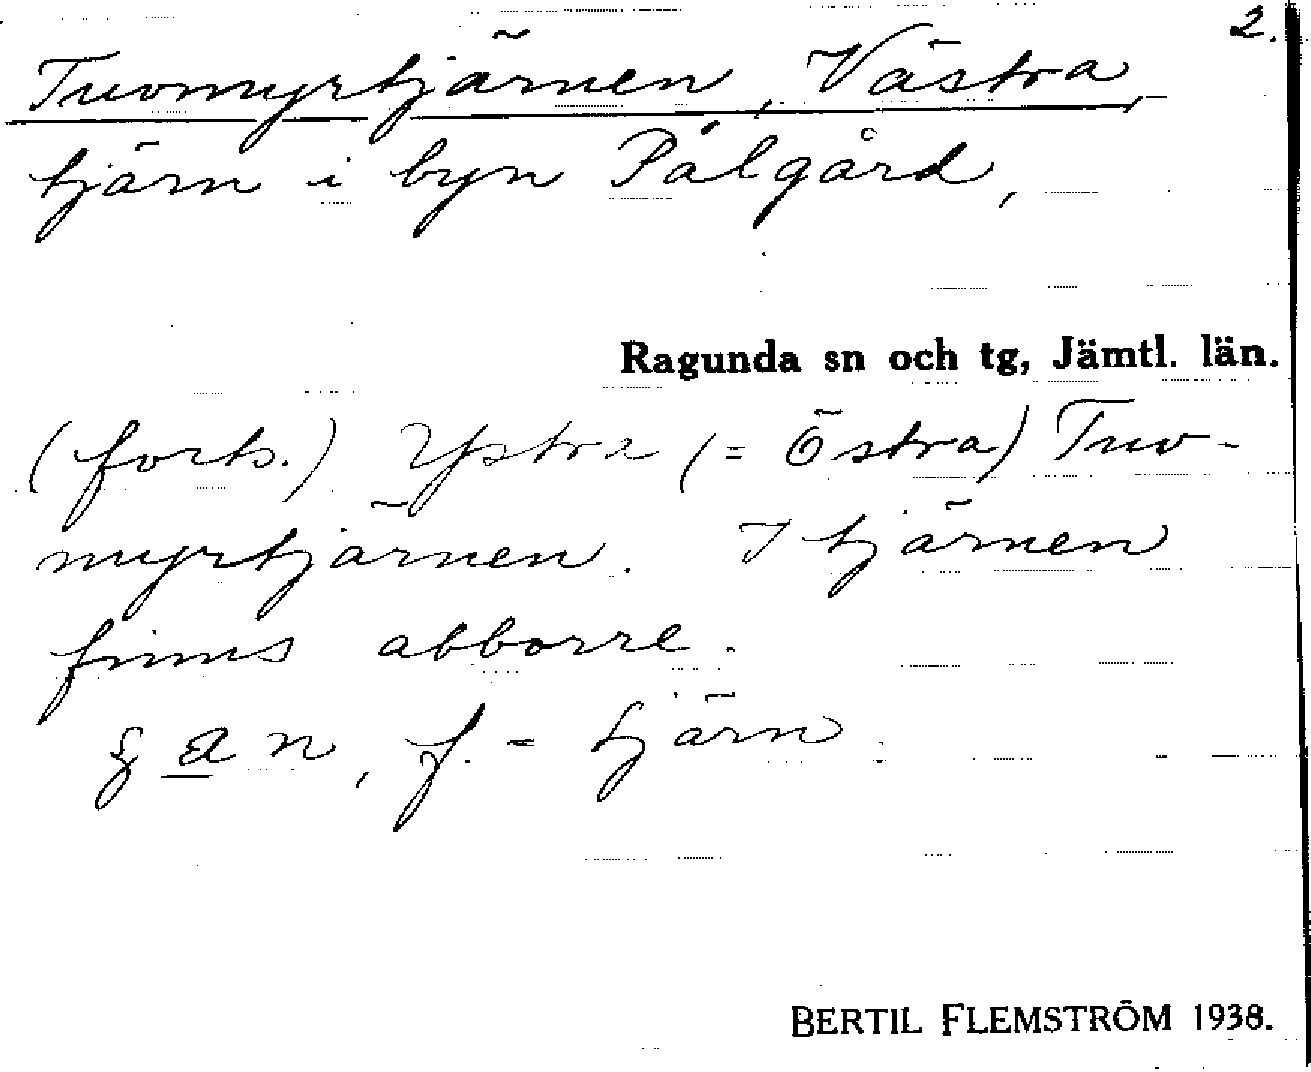 2.
Tuvmyrtjärnen, Västra
tjärn i byn Pålgård,
Ragunda sn och tg, Jämtl. län.
(forts.) Ystra (= Östra) Tuv-
myrtjärnen. I tjärnen
finns abborre.
a n, f. = tjärn.
BERTIL FLEMSTRÖM 1938.